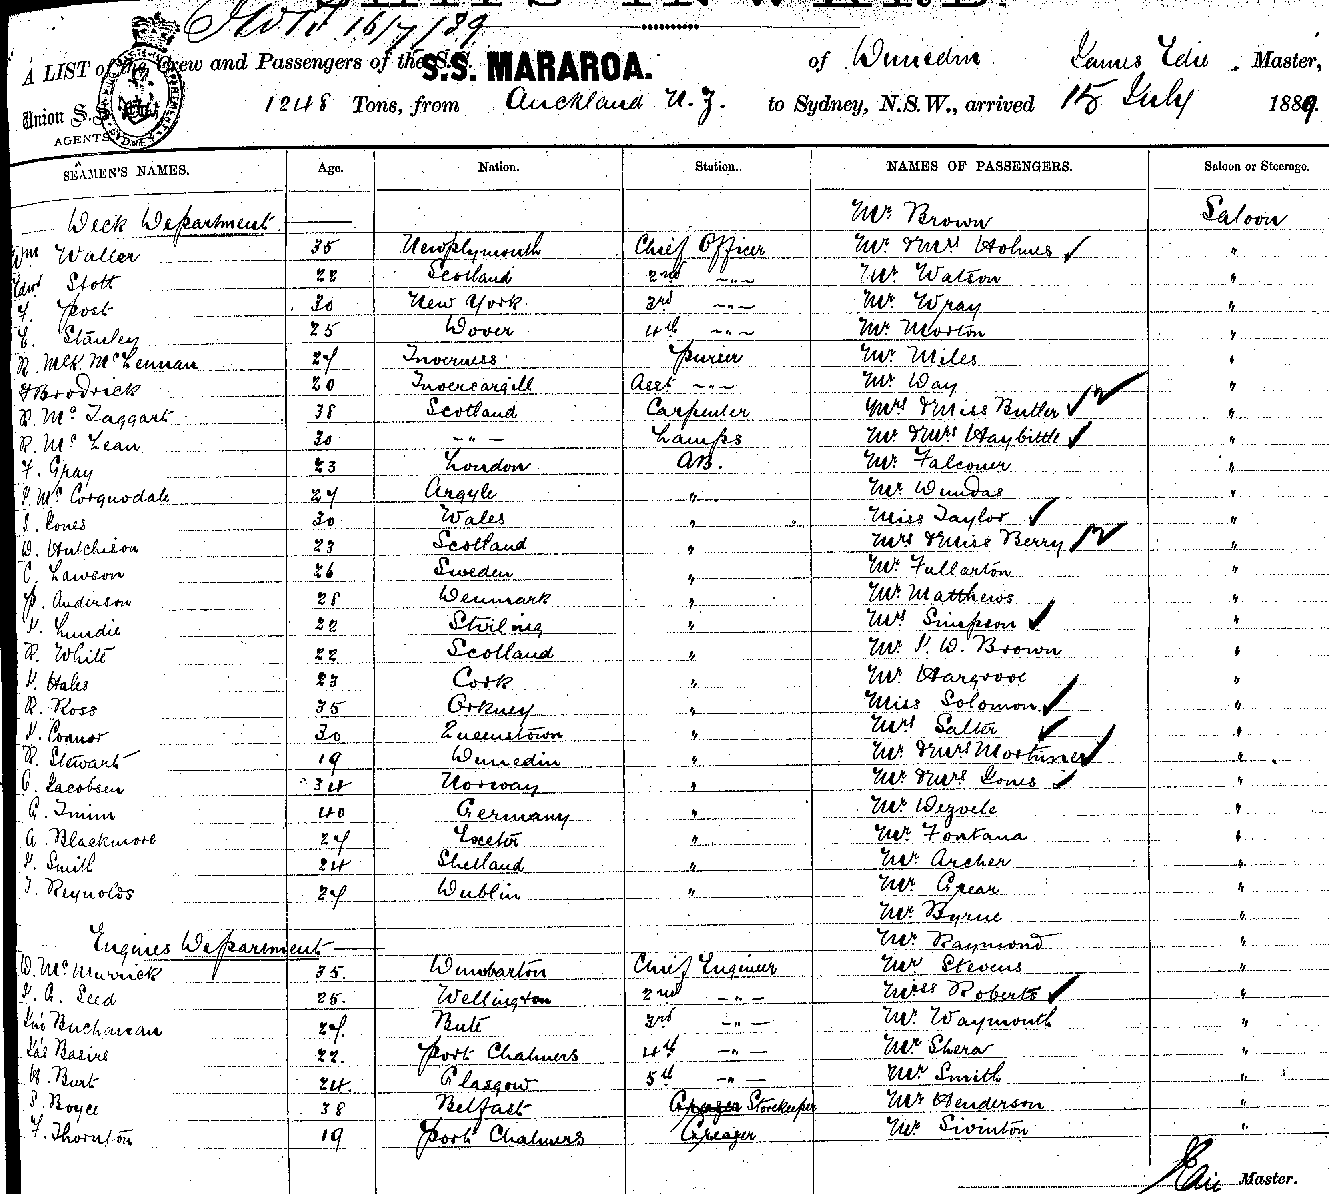 SHIPS INWARD.
16/7/89
A LIST of the Crew and Passengers of the S.S. MARAROA. of Dunedin James Edie, Master,
Union S.S. 1248 Tons, from Auckland N.Z. to Sydney, N.S.W., arrived 15 July 1889.
AGENTS
SEAMEN'S NAMES. Age. Nation. Station. NAMES OF PASSENGERS. Saloon or Steerage.
Deck Department Mr Brown Saloon
Wm Waller 35 New Plymouth Chief Officer Mr & Mrs Holmes ✓ "
Stott 22 Scotland 2nd -"- Mr Watson "
Post 30 New York 3rd -"- Mr Wray "
Stanley 25 Dover 4th -"- Mr Morton "
R. McK. McLennan 27 Inverness Purser Mr Miles "
Brodrick 20 Invercargill Asst -"- Mr Day "
R. McTaggart 38 Scotland Carpenter Mrs & Miss Butler ✓ 2 "
R. McLean 30 -"- Lamps Mr & Mrs Haybittle ✓ "
F. Gray 23 London AB. Mr Falconer "
McCorquodale 27 Argyle " Mr Dundas "
Jones 30 Wales " Miss Taylor ✓ "
D. Hutchison 23 Scotland " Mrs & Miss Berry ✓ 2 "
C. Lawson 26 Sweden " Mr Fullarton "
P. Anderson 28 Denmark " Mr Matthews "
J. Lundie 22 Stirling " Mrs Simpson ✓ "
R. White 22 Scotland " Mr J. D. Brown "
J. Hales 23 Cork " Mr Hargrove "
R. Ross 35 Orkney " Miss Solomon ✓ "
J. Connor 30 Queenstown " Mrs Salter ✓ "
R. Stewart 19 Dunedin " Mr & Mrs Mortimer ✓ "
C. Jacobsen 34 Norway " Mr & Mrs Jones ✓ "
G. Timm 40 Germany " Mr "
A. Blackmore 27 Exeter " Mr Fontana "
J. Smith 24 Shetland " Mr Archer "
J. Reynolds 27 Dublin " Mr Grear "
Mr Byrne "
Engines Department Mr Raymond "
D. McMurrick 35 Dumbarton Chief Engineer Mr Stevens "
J. A. Seed 25 Wellington 2nd -"- Miss Roberts ✓ "
Jno Buchanan 27 Bute 3rd -"- Mr Waymouth "
Jas Basire 22 Port Chalmers 4th -"- Mr Shera "
W. Burt 24 Glasgow 5th -"- Mr Smith "
J. Boyce 38 Belfast Greaser Storekeeper Mr Henderson "
F. Thornton 19 Port Chalmers Greaser Mr Sivinton "
Edie Master.